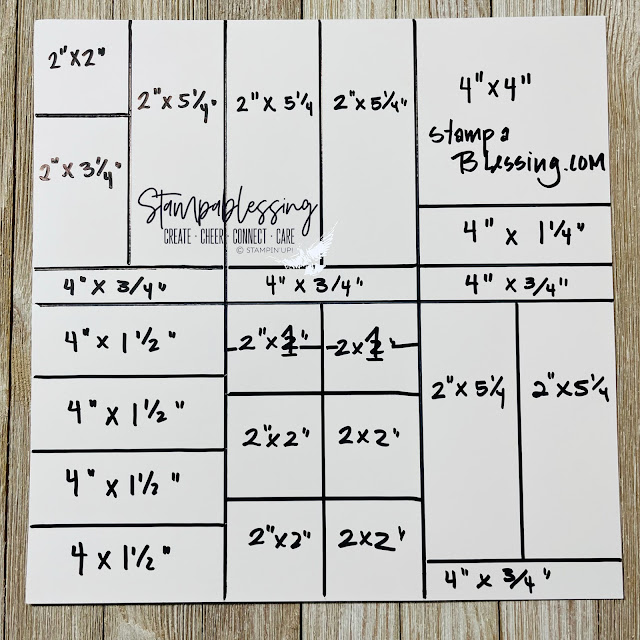 2"x2"
2"x 5¼"
2"x 5¼
2"x5¼"
4"x4"
Stampa
Blessing.com
2"x 3¼"
Stampablessing
CREATE · CHEER · CONNECT · CARE
© STAMPIN' UP!
4" x 1¼"
4" x 3/4"
4" x 3/4"
4" x 3/4"
4" x 1½"
2"x1"
2x1"
2"x5¼
2"x5¼
4" x 1½"
2"x2"
2x2"
4" x 1½"
4 x 1½"
2"x2"
2x2"
4" x 3/4"